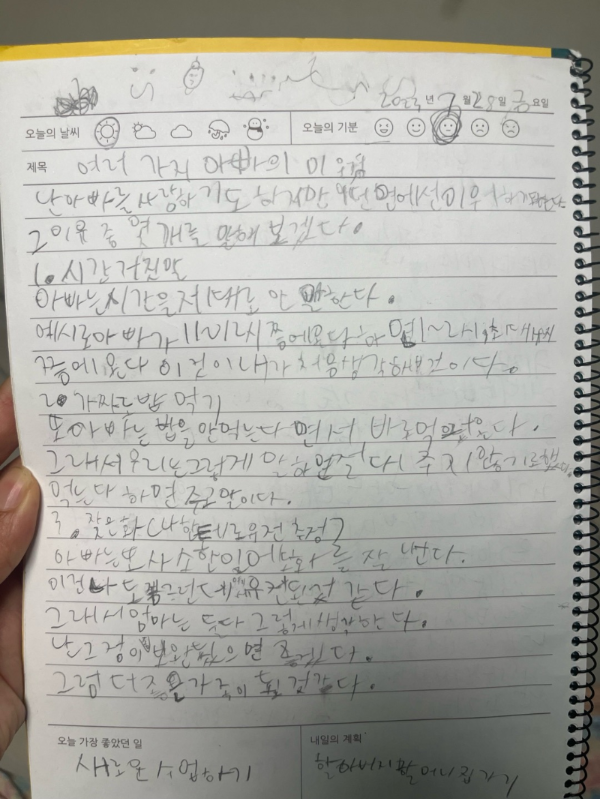 2023년 7월 28일 금요일
오늘의 날씨 오늘의 기분
제목 여러 가지 아빠의 미움점
난 아빠를 사랑하기도 하지만 어떤 면에선 미워하기도한다
그 이유 중 몇 개를 말해 보겠다.
1. 시간 거짓말
아빠는 시간을 제대로 안 말한다.
예시로 아빠가 11~12시 쯤에온다하면 1~2시, 최대 4시
쯤에 온다 이건 이 내가 처음 생각해본 건이다.
2. 가짜로 밥 먹기
또 아빠는 밥을 안먹는다 면서, 바로먹는다.
그래서 우리는 그렇게 말하면 절대 주지 않기로했다.
먹는다 하면 주고 말이다.
3. 잦은화(나한테로 유전 추정)
아빠는 또 사소한 일에 화를 잘 낸다.
이건 나도 그런데 유전된것 같다.
그래서 엄마는 둘다 그렇게 생각한다.
난 그 점이 보완됬으면 좋겠다.
그럼 더 좋은 가족이 될 것같다.
오늘 가장 좋았던 일 내일의 계획
새로운 수업하기 할아버지할머니집가기